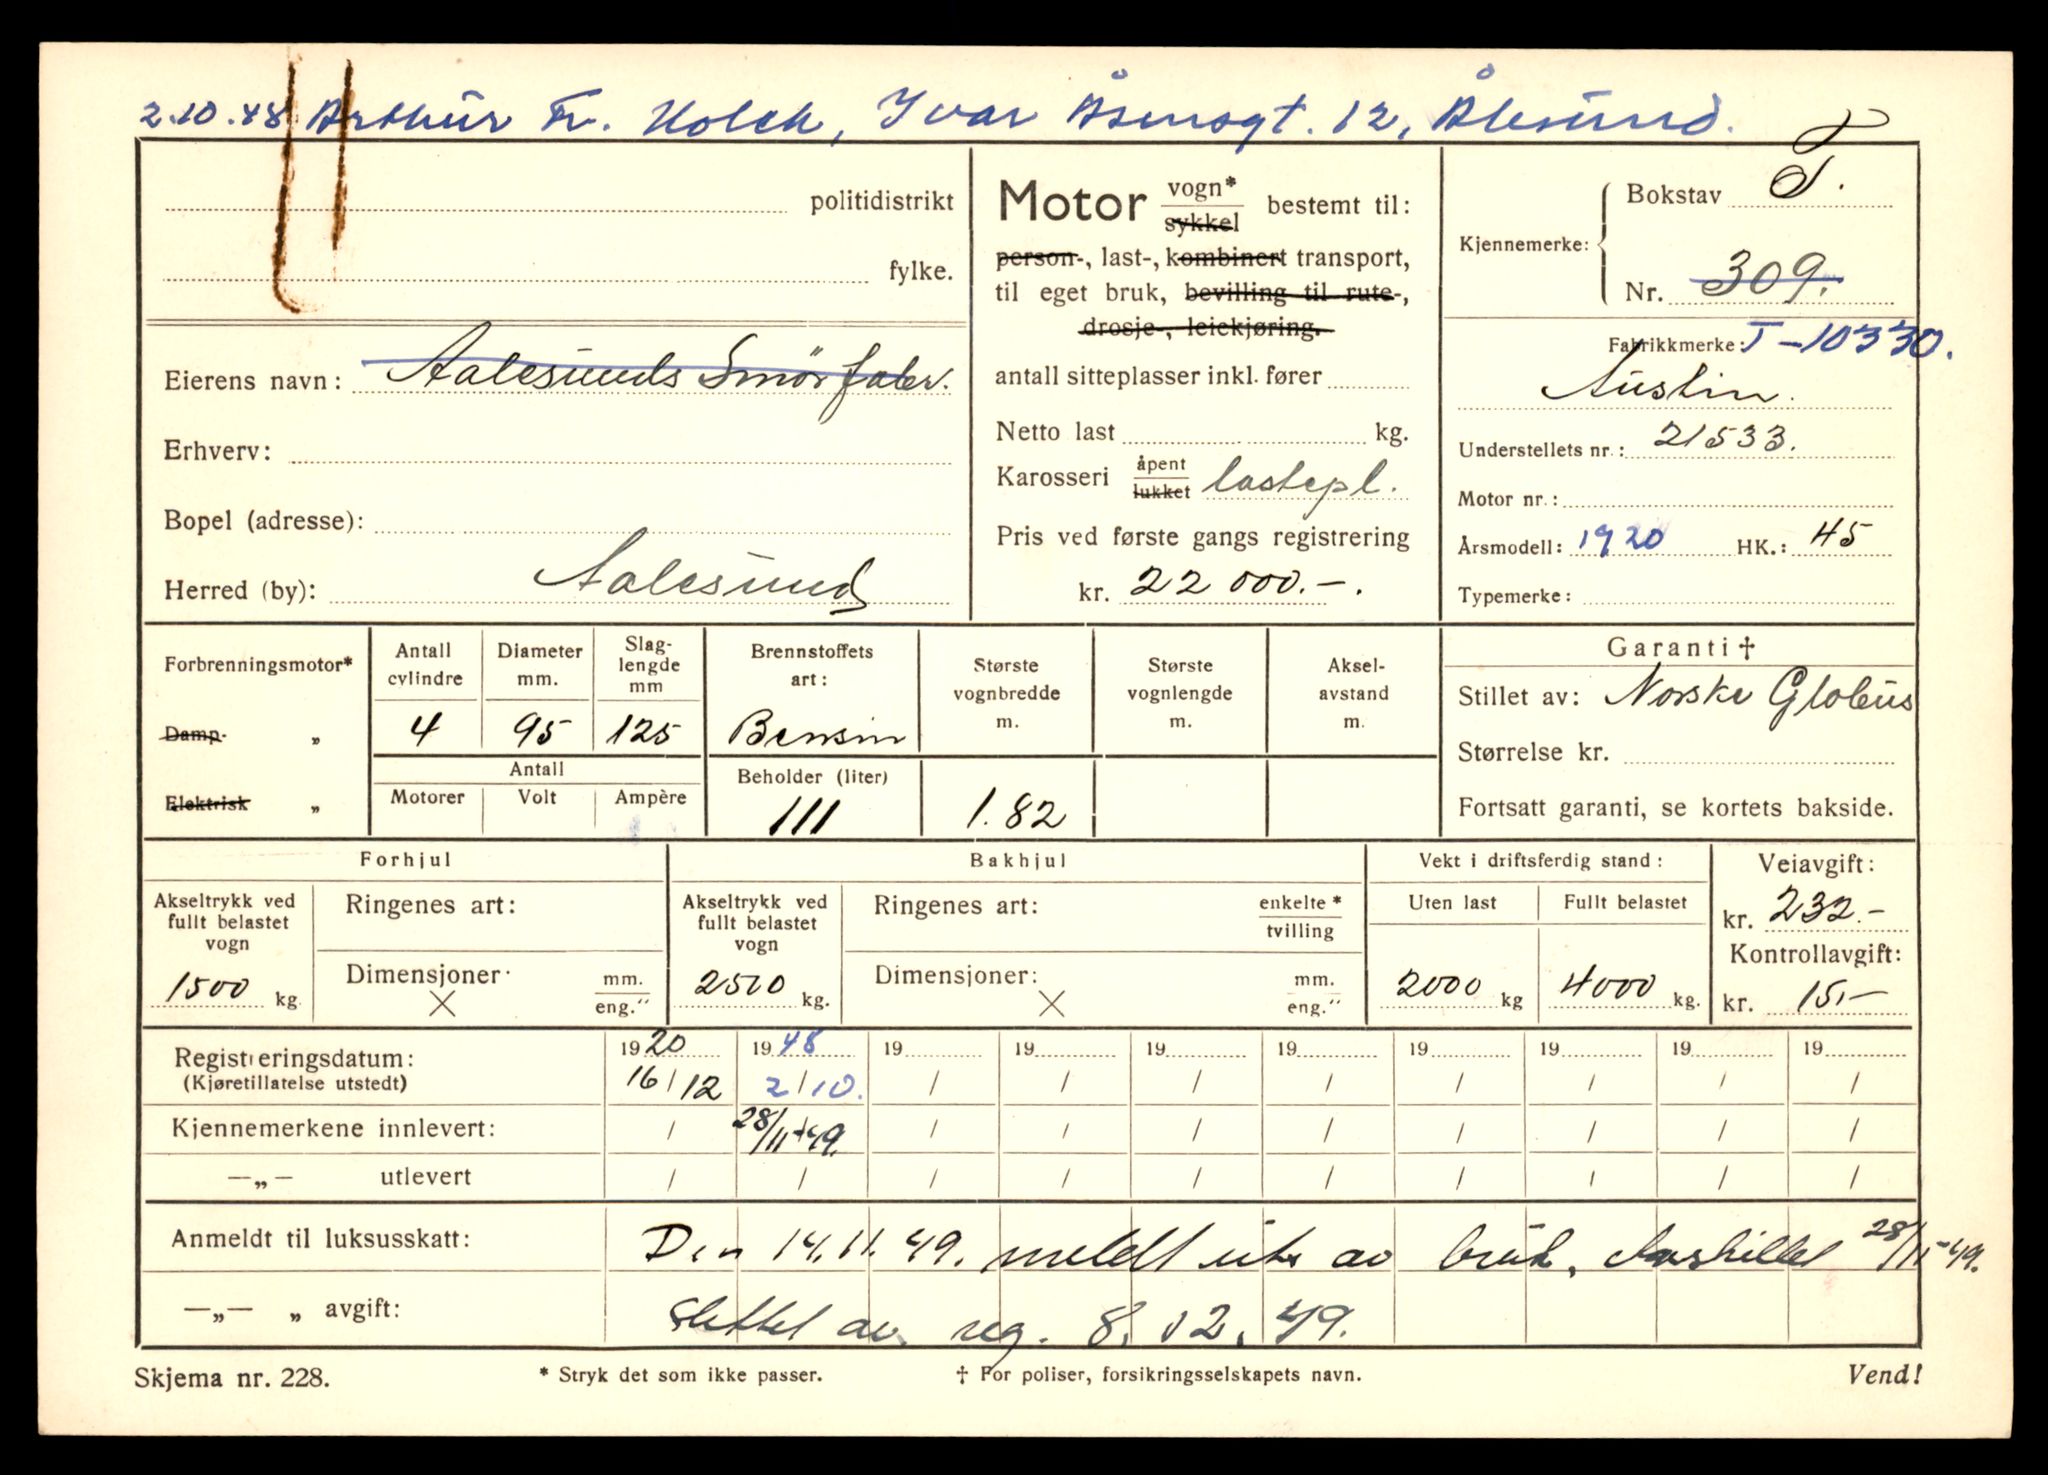 2.10.48 Arthur Fr. Holck, Ivar Åsensgt. 12, Ålesund.
politidistrikt
fylke.
Eierens navn: Aalesunds Smörfabr.
Erhverv:
Bopel (adresse):
Herred (by): Aalesund
Motor vogn* sykkel bestemt til:
person-, last-, kombinert transport,
til eget bruk, bevilling til rute-,
drosje-, leiekjøring.
antall sitteplasser inkl. fører
Netto last kg.
Karosseri åpent lukket lastepl.
Pris ved første gangs registrering
kr. 22 000.-.
Kjennemerke: Bokstav T.
Nr. 309.
T-10330.
Fabrikkmerke:
Austin.
Understellets nr.: 21533.
Motor nr.:
Årsmodell: 1920 HK.: 45
Typemerke:
Forbrenningsmotor*
Damp- „
Elektrisk „
Antall cylindre
4
Diameter mm.
95
Slaglengde mm
125
Antall
Motorer Volt Ampère
Brennstoffets art:
Bensin
Beholder (liter)
111
Største vognbredde m.
1.82
Største vognlengde m.
Akselavstand m.
Garanti †
Stillet av: Norske Globus
Størrelse kr.
Fortsatt garanti, se kortets bakside.
Forhjul
Akseltrykk ved fullt belastet vogn
1500 kg.
Ringenes art:
Dimensjoner: mm. eng."
×
Bakhjul
Akseltrykk ved fullt belastet vogn
2500 kg.
Ringenes art: enkelte* tvilling
Dimensjoner: mm. eng."
×
Vekt i driftsferdig stand:
Uten last Fullt belastet
2000 kg 4000 kg.
Veiavgift:
kr. 232.-
Kontrollavgift:
kr. 15,-
Registreringsdatum: 1920 1948 19 19 19 19 19 19 19 19
(Kjøretillatelse utstedt) 16/12 2/10. / / / / / / / /
Kjennemerkene innlevert: / 28/11-49. / / / / / / / /
—„— utlevert / / / / / / / / / /
Anmeldt til luksusskatt: Den 14.11.49. meldt ut av bruk. Avskiltet 28/11-49.
—„— „ avgift: Slettet av reg. 8.12.49.
Skjema nr. 228. * Stryk det som ikke passer. † For poliser, forsikringsselskapets navn. Vend!